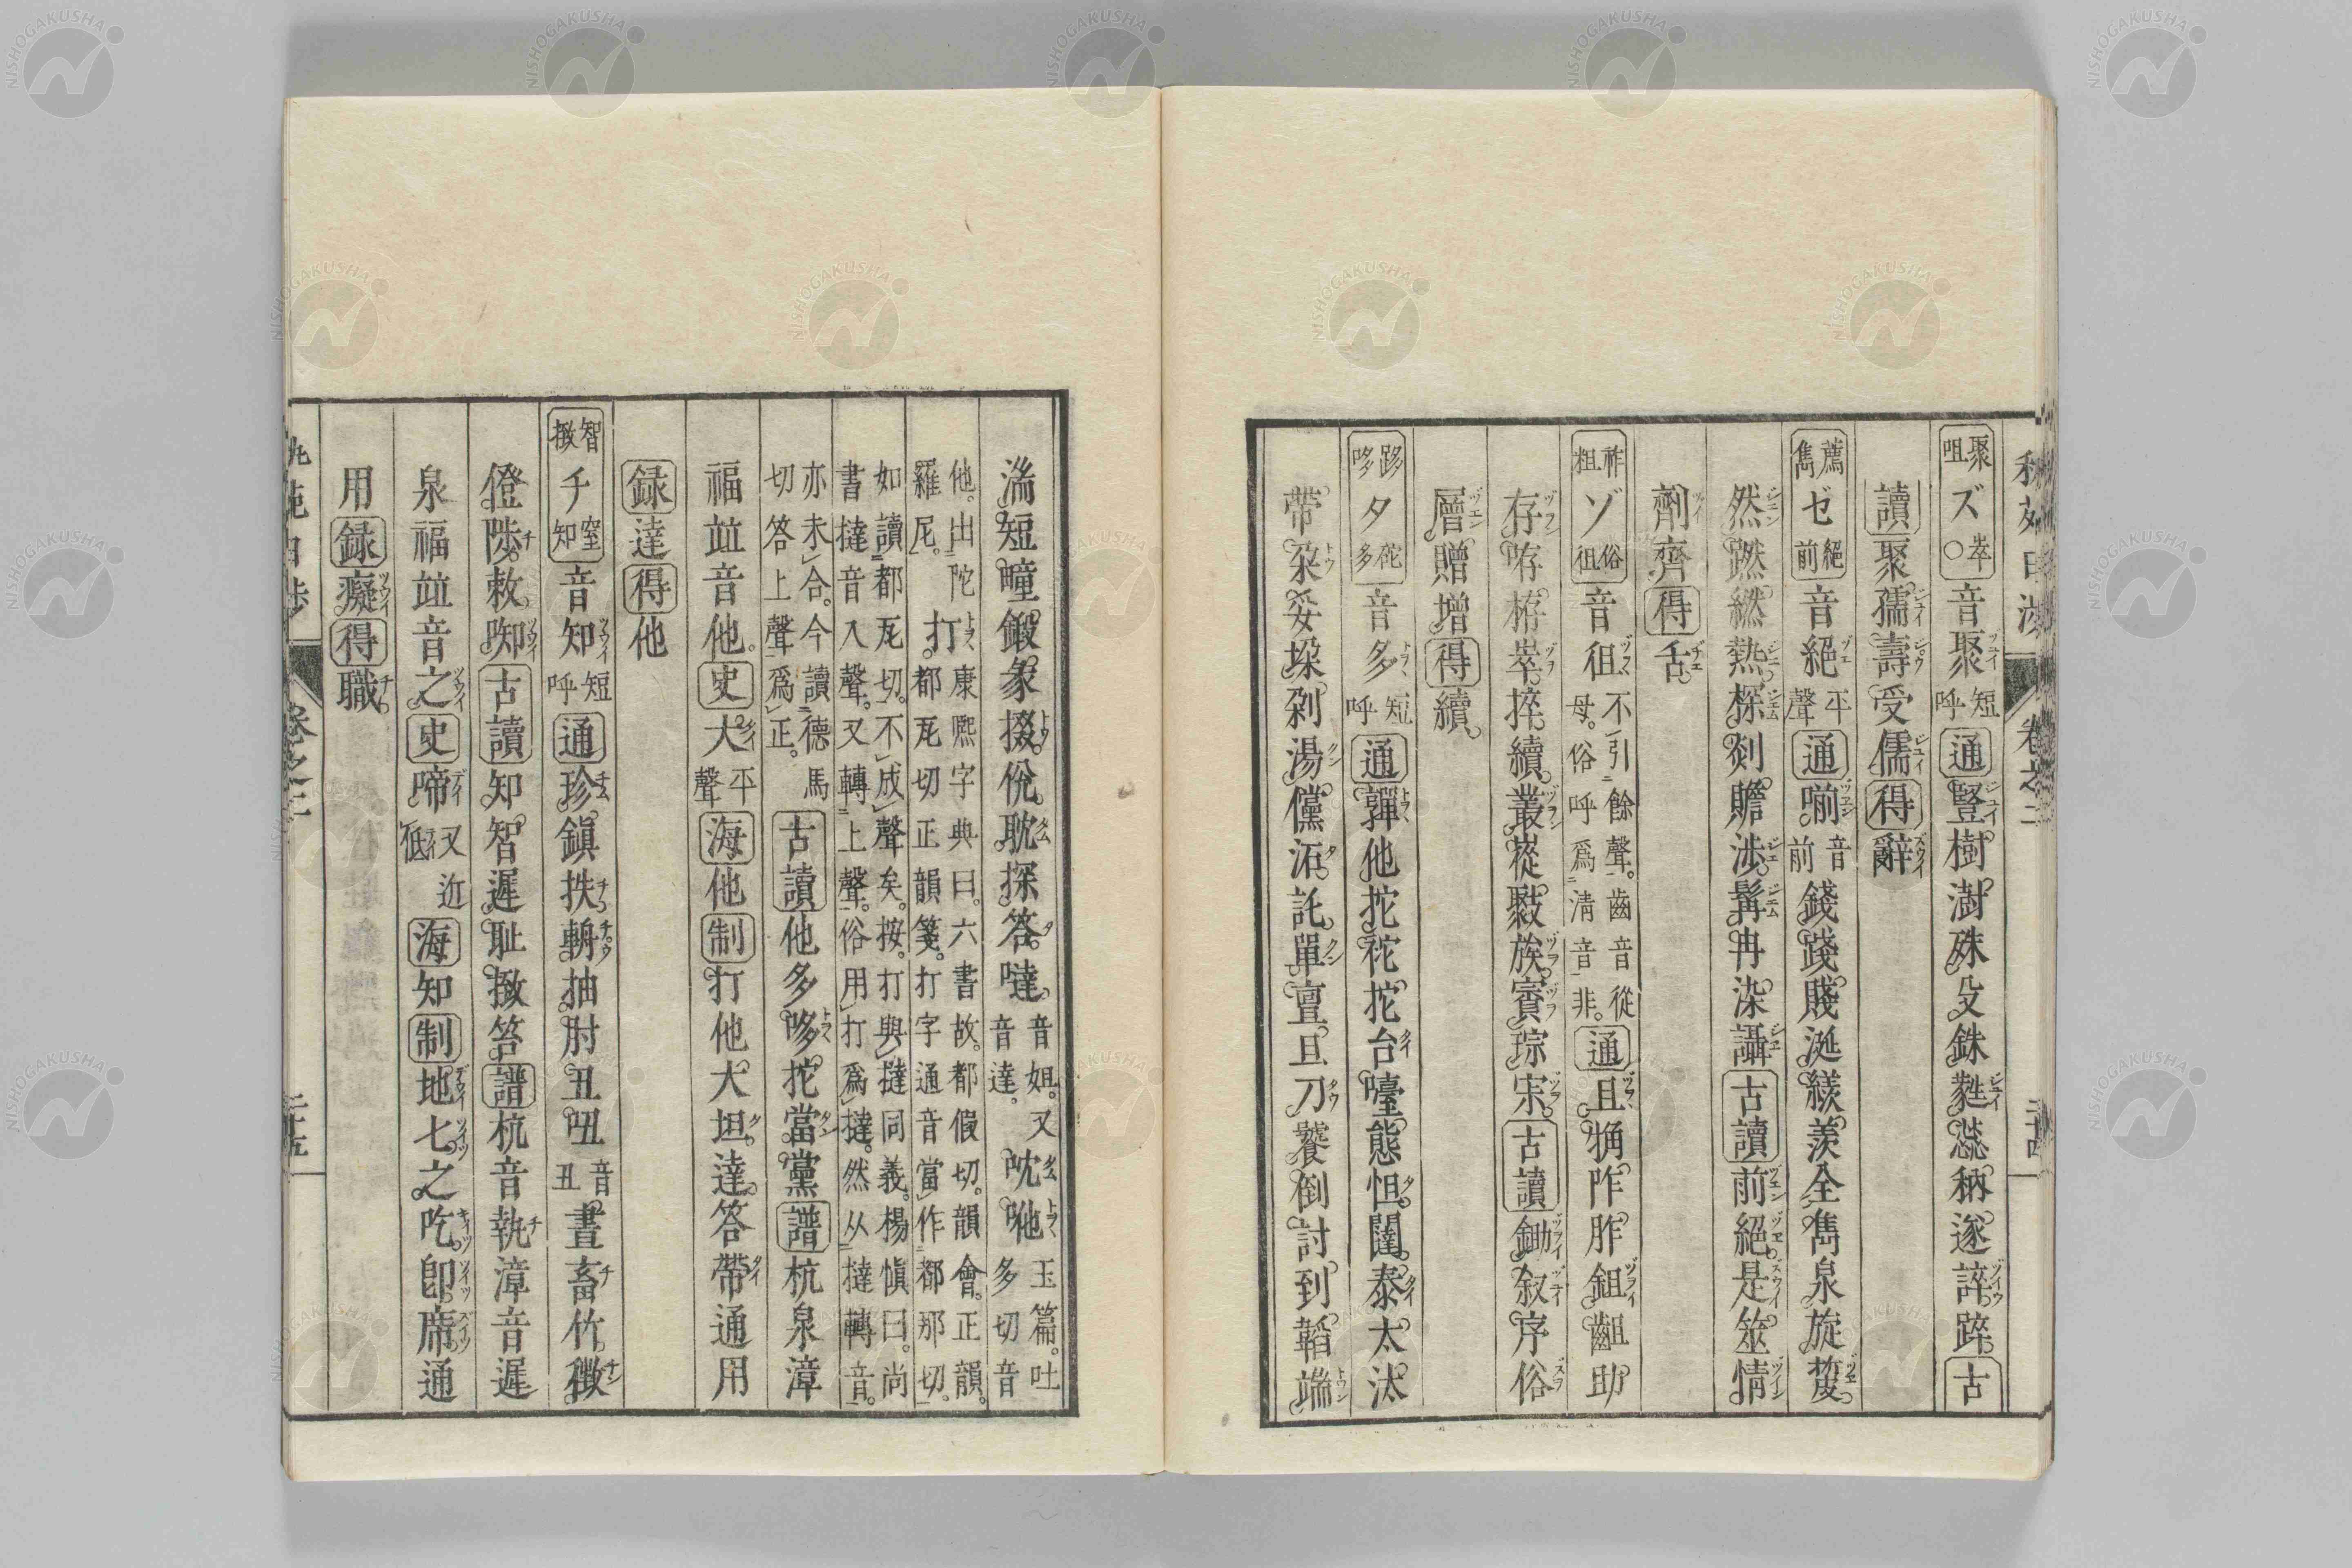 聚咀ズ崒○音聚短呼通豎樹澍殊殳銖蕤蕊枘遂誶踤古
讀聚孺壽受儒得辭
薦雋ゼ絕前音絕平聲通喲音前錢踐賤涎綫羨全雋泉旋蹔
然燃繎熱𣗳剡贍涉髯冉染讘古讀前絕是筮情
劑齊得舌
祚粗ゾ俗徂音徂不引餘聲齒音從母俗呼爲清音非通且觕咋胙鉏齟助
存咾栫崒捽續叢樅鼜族賨琮宋古讀鋤叙序俗
層贈增得續
跢哆タ佗多音多短呼通嚲他拕袉挖台嚔態怛闥泰太汰
帶朶妥垛剁湯儻沰託單亶旦刀饕倒討到韜端
湍短疃鍛彖掇侻耽探答噠音姐又音達㕪𠯈玉篇吐多切音
他出陀羅尼打康熙字典曰六書故都假切韻會正韻都瓦切正韻箋打字通音當作都那切
如讀都瓦切不成聲矣按打與撻同義楊愼曰尚書撻音入聲又轉上聲俗用打爲撻然从撻轉音
亦未合今讀德馬切答上聲爲正古讀他多哆挓當黨譜杭泉漳
福竝音他史大平聲海他制打他大坦達答帶通用
録達得他
智㨖チ窒知音知短呼通珍鎭抶輈抽肘丑吜音丑晝畜竹徵
僜陟敕𠴨古讀知智遲恥㨖笞譜杭音執漳音遲
泉福竝音之史啼又近低海知制地七之吃卽席通
用録癡得職
卷之二
二十四
卷之二
二十五
NISHOGAKUSHA